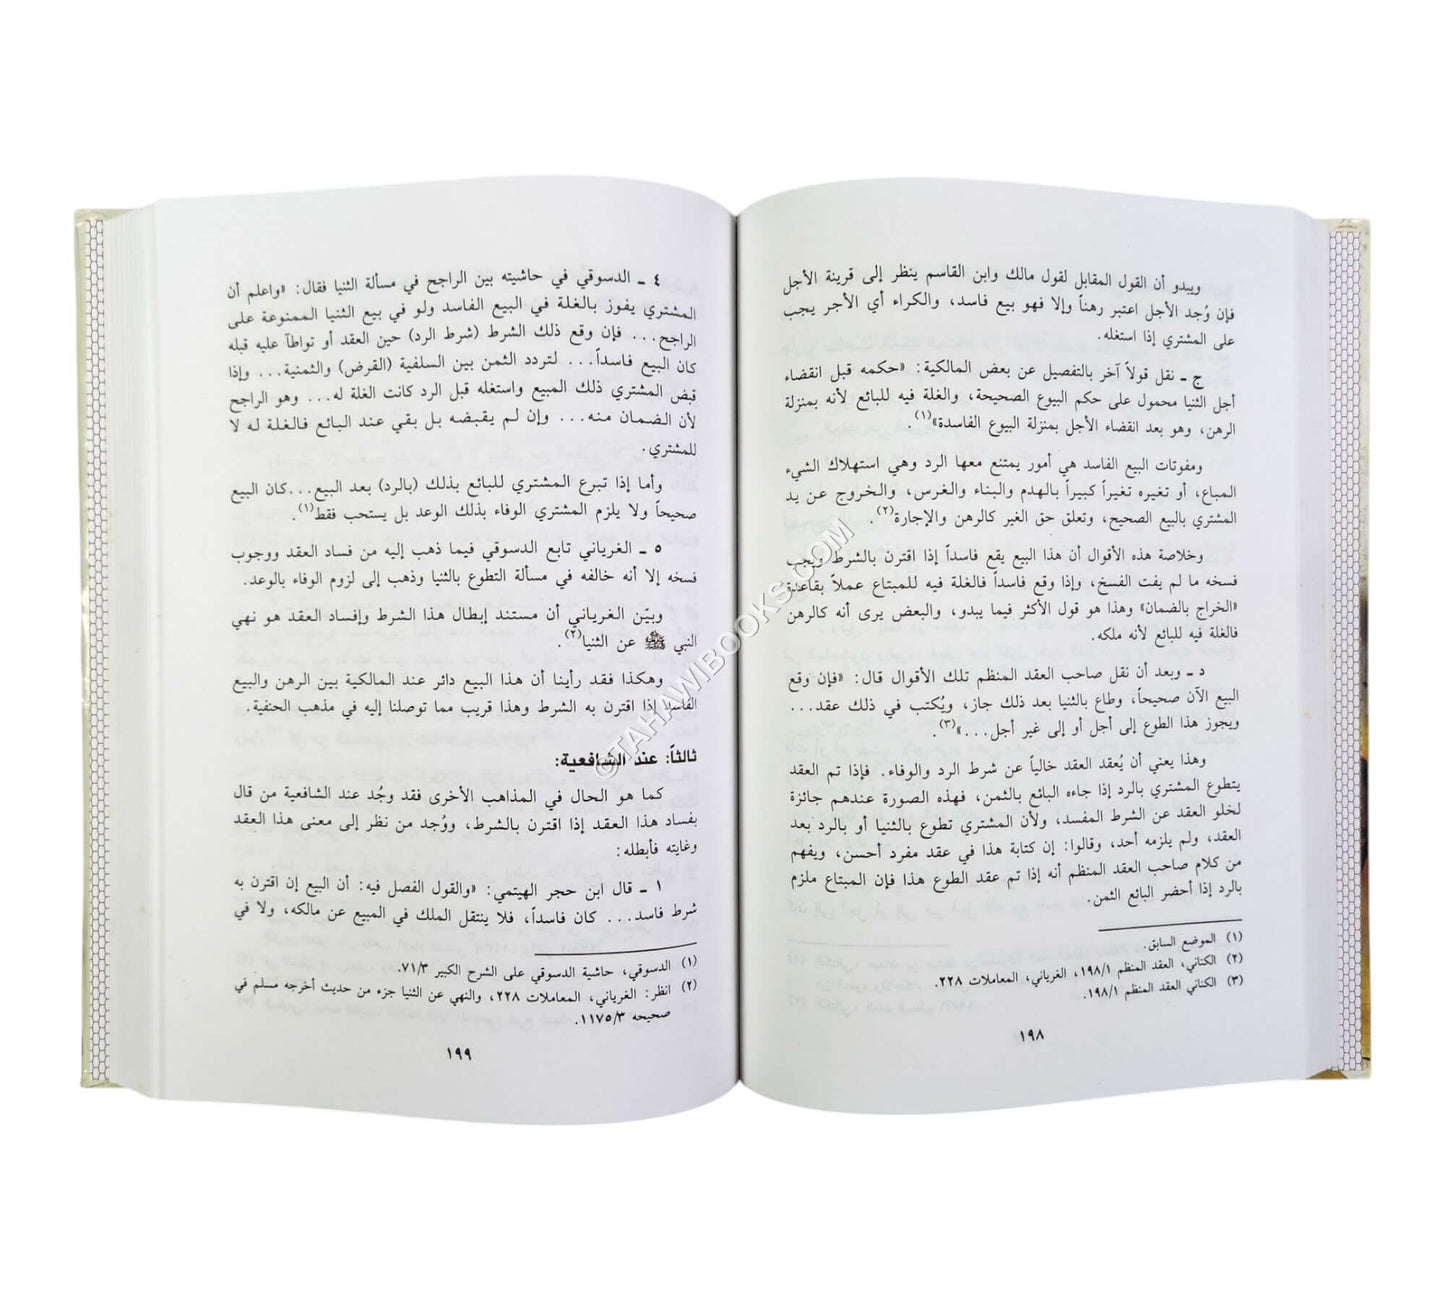 ويبدو أن القول المقابل لقول مالك وابن القاسم ينظر إلى قرينة الأجل
فإن وُجد الأجل اعتبر رهناً وإلا فهو بيع فاسد، والكراء أي الأجر يجب
على المشتري إذا استغله.
ج ـ نقل قولاً آخر بالتفصيل عن بعض المالكية: «حكمه قبل انقضاء
أجل الثنيا محمول على حكم البيوع الصحيحة، والغلة فيه للبائع لأنه بمنزلة
الرهن، وهو بعد انقضاء الأجل بمنزلة البيوع الفاسدة»(١).
ومفوتات البيع الفاسد هي أمور يمتنع معها الرد وهي استهلاك الشيء
المباع، أو تغيره تغيراً كبيراً بالهدم والبناء والغرس، والخروج عن يد
المشتري بالبيع الصحيح، وتعلق حق الغير كالرهن والإجارة(٢).
وخلاصة هذه الأقوال أن هذا البيع يقع فاسداً إذا اقترن بالشرط ويجب
فسخه ما لم يفت الفسخ، وإذا وقع فاسداً فالغلة فيه للمبتاع عملاً بقاعدة
«الخراج بالضمان» وهذا هو قول الأكثر فيما يبدو، والبعض يرى أنه كالرهن
فالغلة فيه للبائع لأنه ملكه.
د ـ وبعد أن نقل صاحب العقد المنظم تلك الأقوال قال: «فإن وقع
البيع الآن صحيحاً، وطاع بالثنيا بعد ذلك جاز، ويُكتب في ذلك عقد...
ويجوز هذا الطوع إلى أجل أو إلى غير أجل...»(٣).
وهذا يعني أن يُعقد العقد خالياً عن شرط الرد والوفاء. فإذا تم العقد
يتطوع المشتري بالرد إذا جاءه البائع بالثمن، فهذه الصورة عندهم جائزة
لخلو العقد عن الشرط المفسد، ولأن المشتري تطوع بالثنيا أو بالرد بعد
العقد، ولم يلزمه أحد، وقالوا: إن كتابة هذا في عقد مفرد أحسن، ويفهم
من كلام صاحب العقد المنظم أنه إذا تم عقد الطوع هذا فإن المبتاع ملزم
بالرد إذا أحضر البائع الثمن.
(١) الموضع السابق.
(٢) الكتاني، العقد المنظم ١٩٨/١، الغرياني، المعاملات ٢٢٨.
(٣) الكتاني العقد المنظم ١٩٨/١.
١٩٨
٤ ـ الدسوقي في حاشيته بين الراجح في مسألة الثنيا فقال: «واعلم أن
المشتري يفوز بالغلة في البيع الفاسد ولو في بيع الثنيا الممنوعة على
الراجح... فإن وقع ذلك الشرط (شرط الرد) حين العقد أو تواطآ عليه قبله
كان البيع فاسداً... لتردد الثمن بين السلفية (القرض) والثمنية... وإذا
قبض المشتري ذلك المبيع واستغله قبل الرد كانت الغلة له... وهو الراجح
لأن الضمان منه... وإن لم يقبضه بل بقي عند البائع فالغلة له لا
للمشتري.
وأما إذا تبرع المشتري للبائع بذلك (بالرد) بعد البيع...كان البيع
صحيحاً ولا يلزم المشتري الوفاء بذلك الوعد بل يستحب فقط(١).
٥ ـ الغرياني تابع الدسوقي فيما ذهب إليه من فساد العقد ووجوب
فسخه إلا أنه خالفه في مسألة التطوع بالثنيا وذهب إلى لزوم الوفاء بالوعد.
وبيّن الغرياني أن مستند إبطال هذا الشرط وإفساد العقد هو نهي
النبي ﷺ عن الثنيا(٢).
وهكذا فقد رأينا أن هذا البيع دائر عند المالكية بين الرهن والبيع
الفاسد إذا اقترن به الشرط وهذا قريب مما توصلنا إليه في مذهب الحنفية.
ثالثاً: عند الشافعية:
كما هو الحال في المذاهب الأخرى فقد وجُد عند الشافعية من قال
بفساد هذا العقد إذا اقترن بالشرط، ووُجد من نظر إلى معنى هذا العقد
وغايته فأبطله:
١ ـ قال ابن حجر الهيتمي: «والقول الفصل فيه: أن البيع إن اقترن به
شرط فاسد... كان فاسداً، فلا ينتقل الملك في المبيع عن مالكه، ولا في
(١) الدسوقي، حاشية الدسوقي على الشرح الكبير ٧١/٣.
(٢) انظر: الغرياني، المعاملات ٢٢٨، والنهي عن الثنيا جزء من حديث أخرجه مسلم في
صحيحه ١١٧٥/٣.
١٩٩
©TAHAWIBOOKS.COM